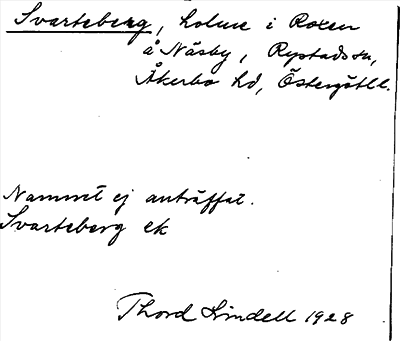 Svarteberg, holme i Roxen
å Näsby, Rystads sn,
Åkerbo hd, Östergötl l.
Namnet ej anträffat.
Svarteberg ek
Thord Lindell 1928